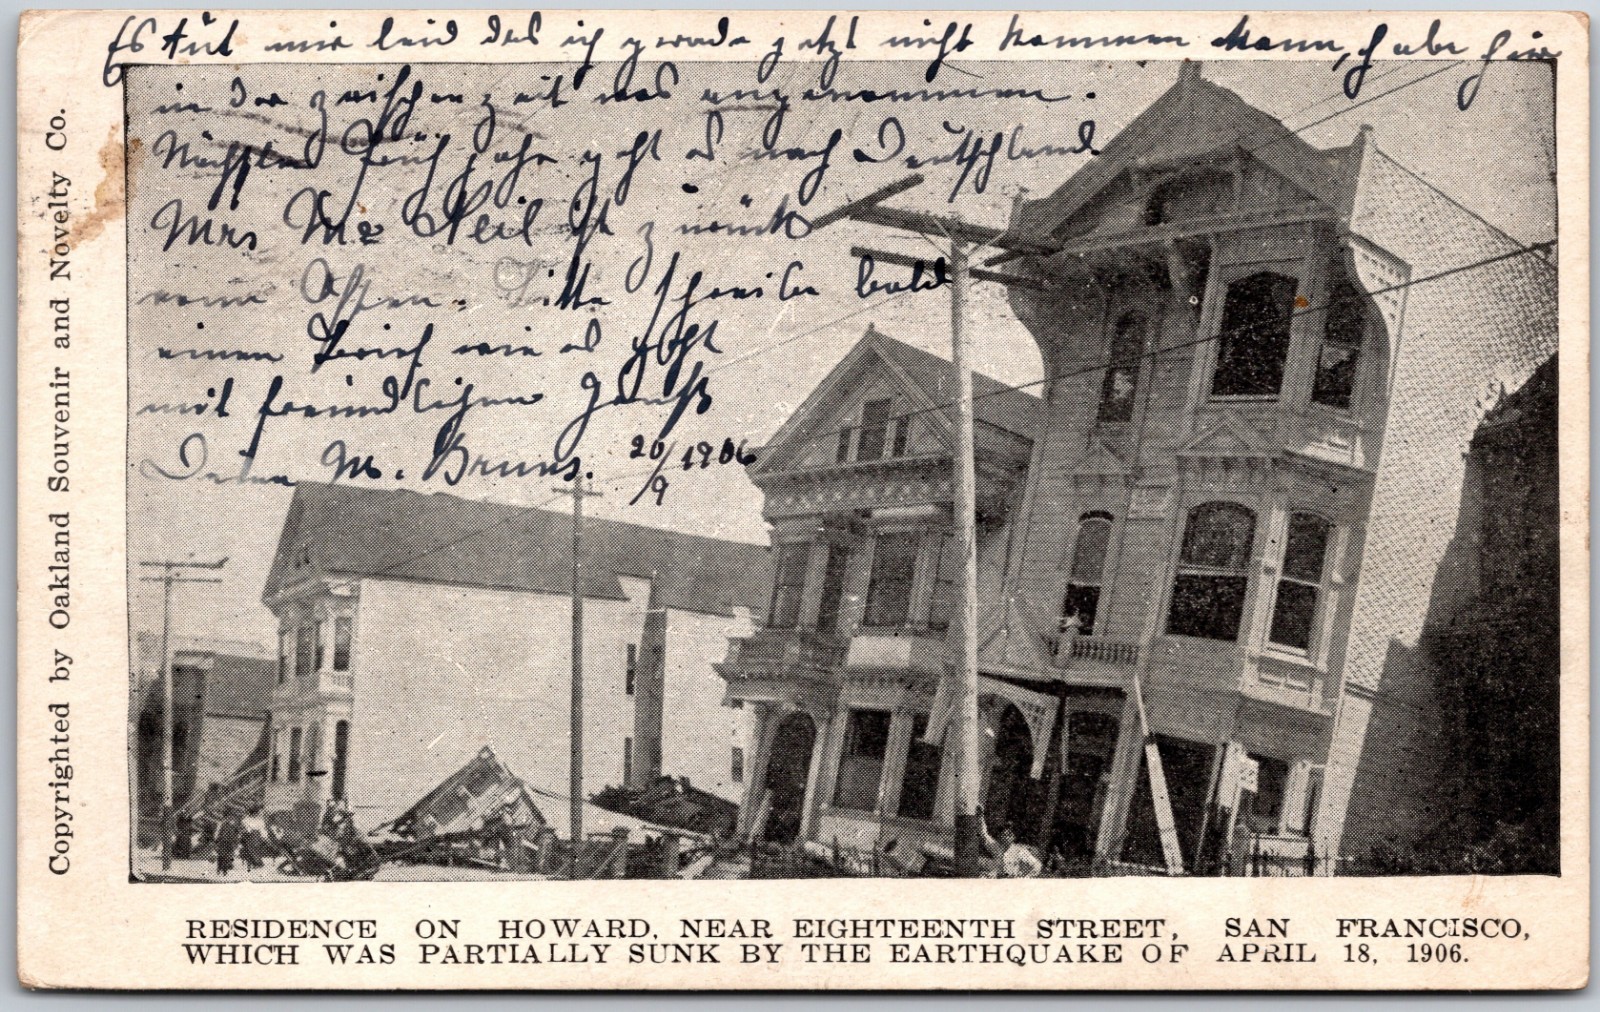 Es tut mir leid das ich gerade jetzt nicht kommen kann, habe hier
in der zwischenzeit was angenommen.
Nächstes Frühjahr geht es nach Deutschland
Mrs Mc Neil ist zurück
vom Osten. Bitte schreibe bald
einen Brief wie es geht
mit freundlichem Gruß
Deine M. Bruns. 20/9 1906
Copyrighted by Oakland Souvenir and Novelty Co.
RESIDENCE ON HOWARD, NEAR EIGHTEENTH STREET, SAN FRANCISCO,
WHICH WAS PARTIALLY SUNK BY THE EARTHQUAKE OF APRIL 18, 1906.